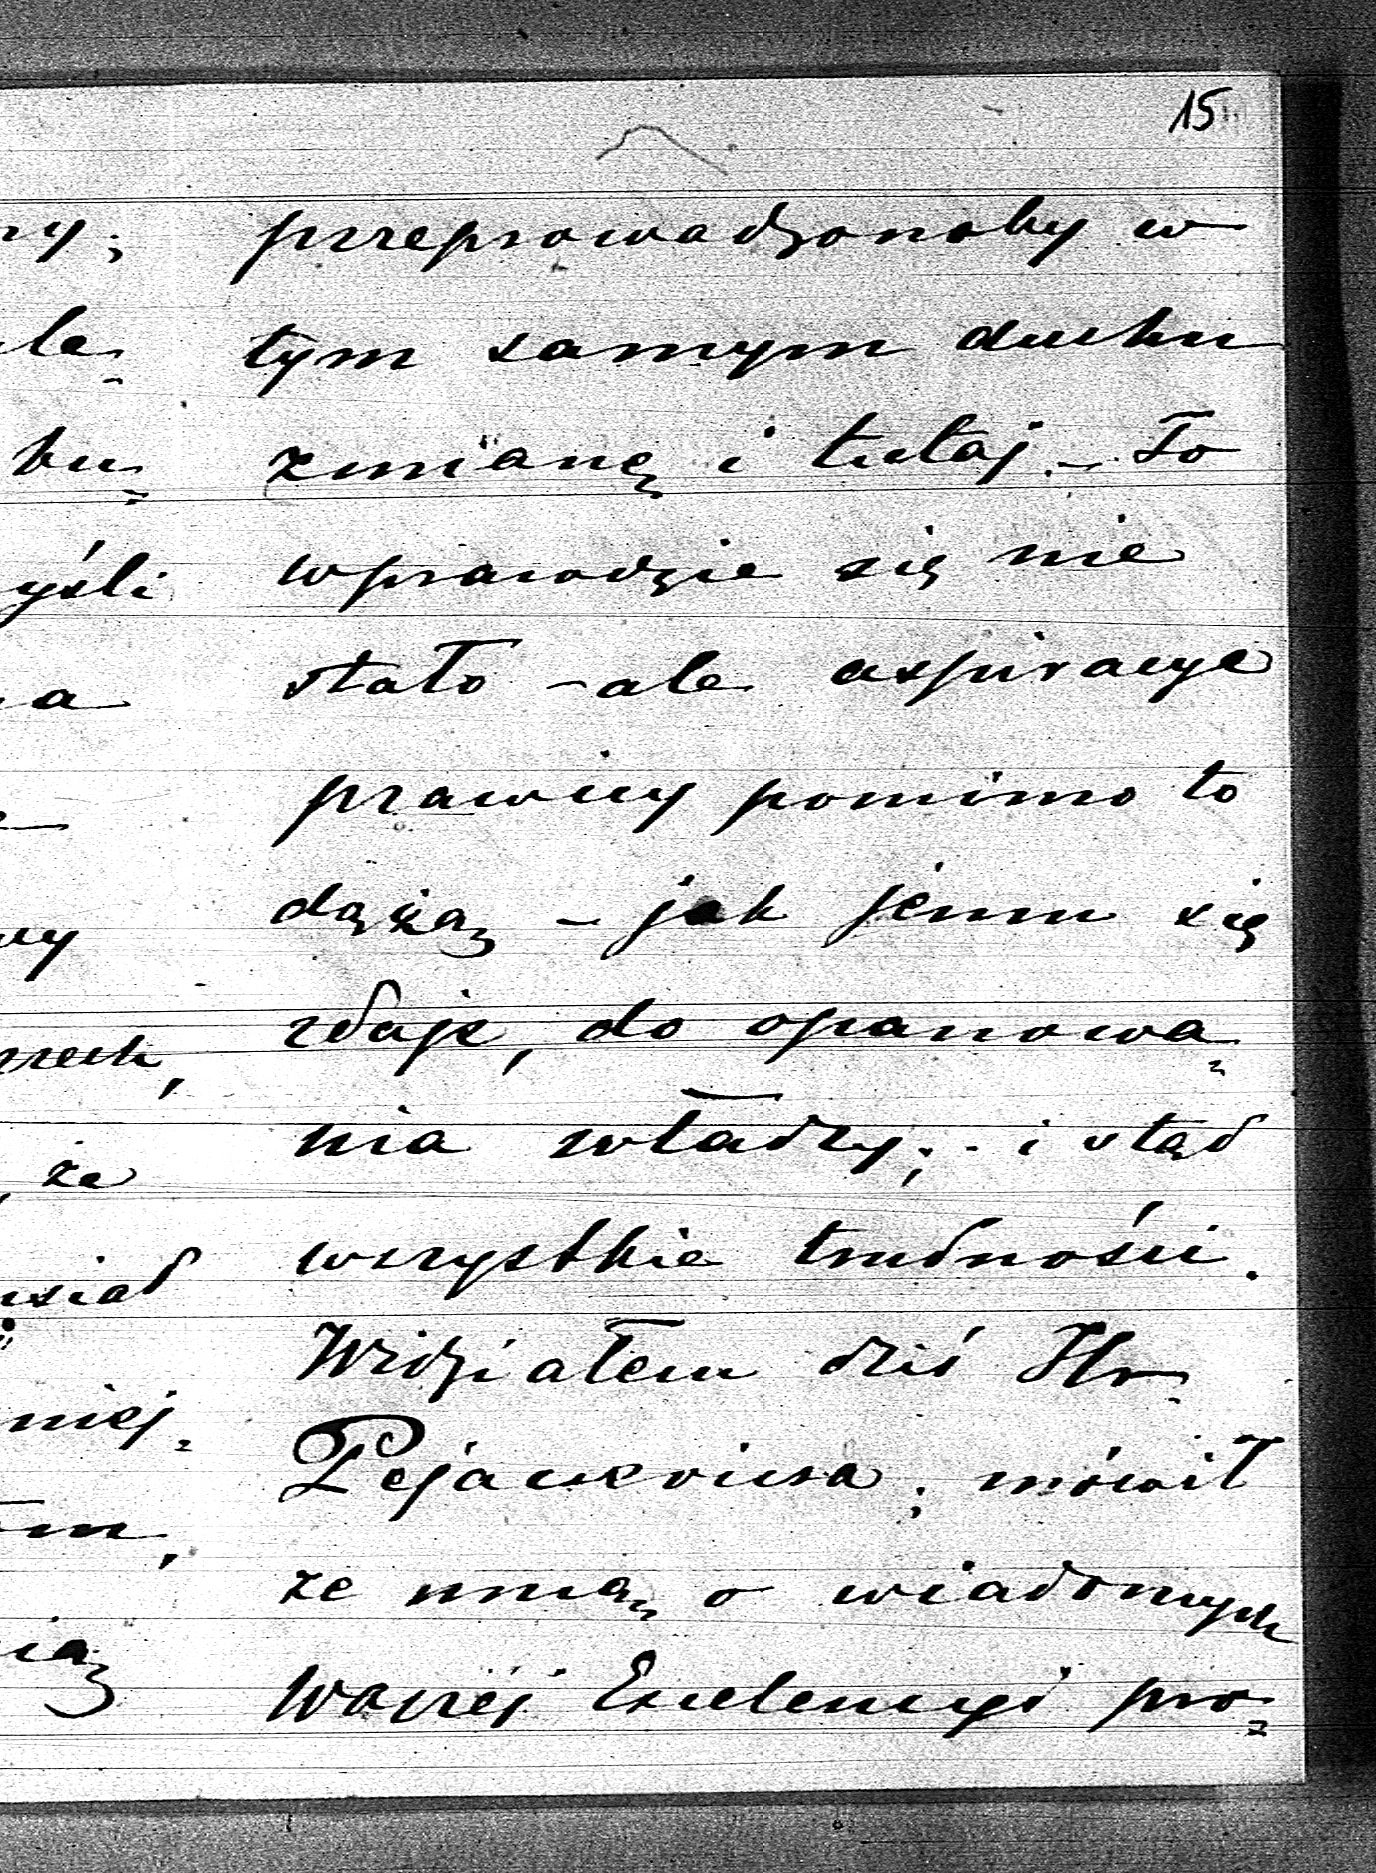 15
przeprowadzonoby w
tym samym duchu
zmianę i tutaj. – To
wprawdzie się nie
stało – ale aspiracye
prawicy pomimo to
dążą – jak jemu się
zdaje, do opanowa-
nia władzy; - i stąd
wszystkie trudności.
Widziałem dziś Hr.
Pejacsevicsa; mówił
ze mną o wiadomych
Waszej Excelencyi pro-